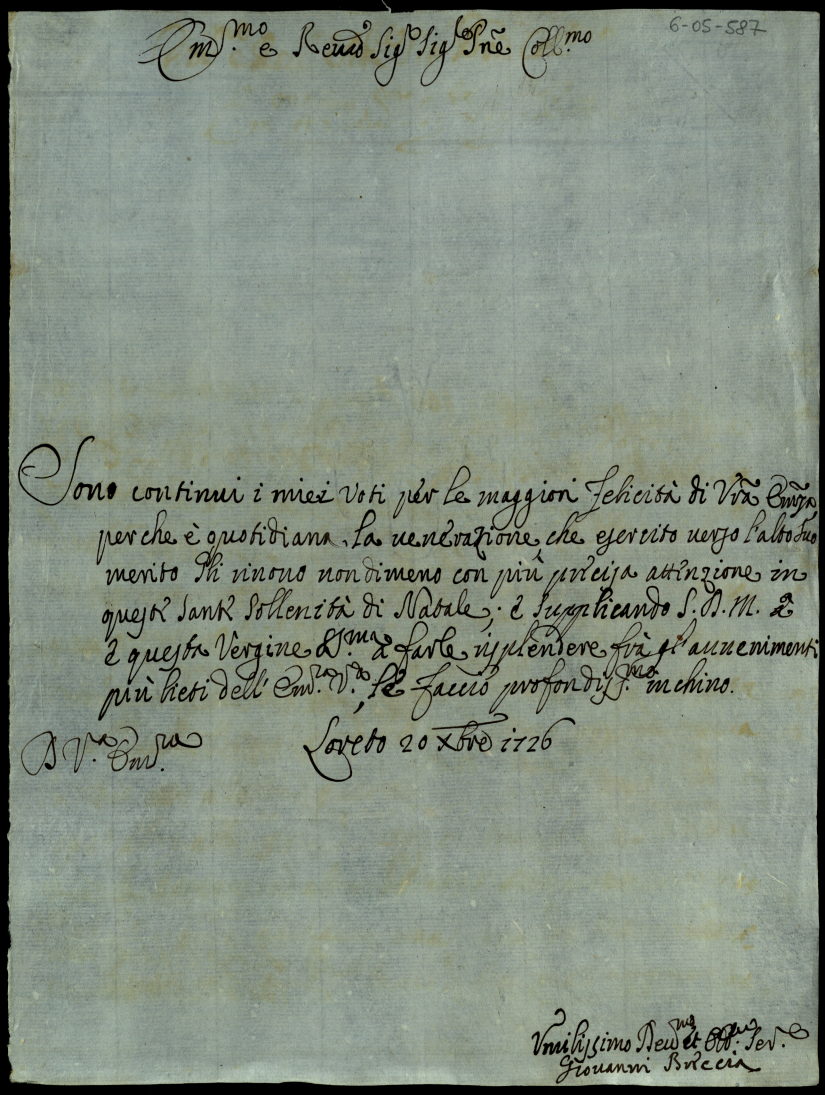 6-05-587
Em.mo e Revmo Sig.r Sig.r Pñe Coll.mo
Sono continui i miei voti per le maggiori felicità di Vrã Emza
perche è quotidiana la venerazione, che esercito verso l'alto suo
merito Gli rinovo nondimeno con più precisa attenzione in
queste sante sollenità di Natale, e supplicando S. D. M. 
e questa Vergine SS.ma a farle risplendere frà gl'avvenimenti
più lieti dell' Em.za V.ra, le faccio profondiss.mo inchino.
D V.ra Em.za Loreto 20 Xbre 1726
Vmilissimo Dev.mo et Obb.mo Ser.e
Giovanni Breccia